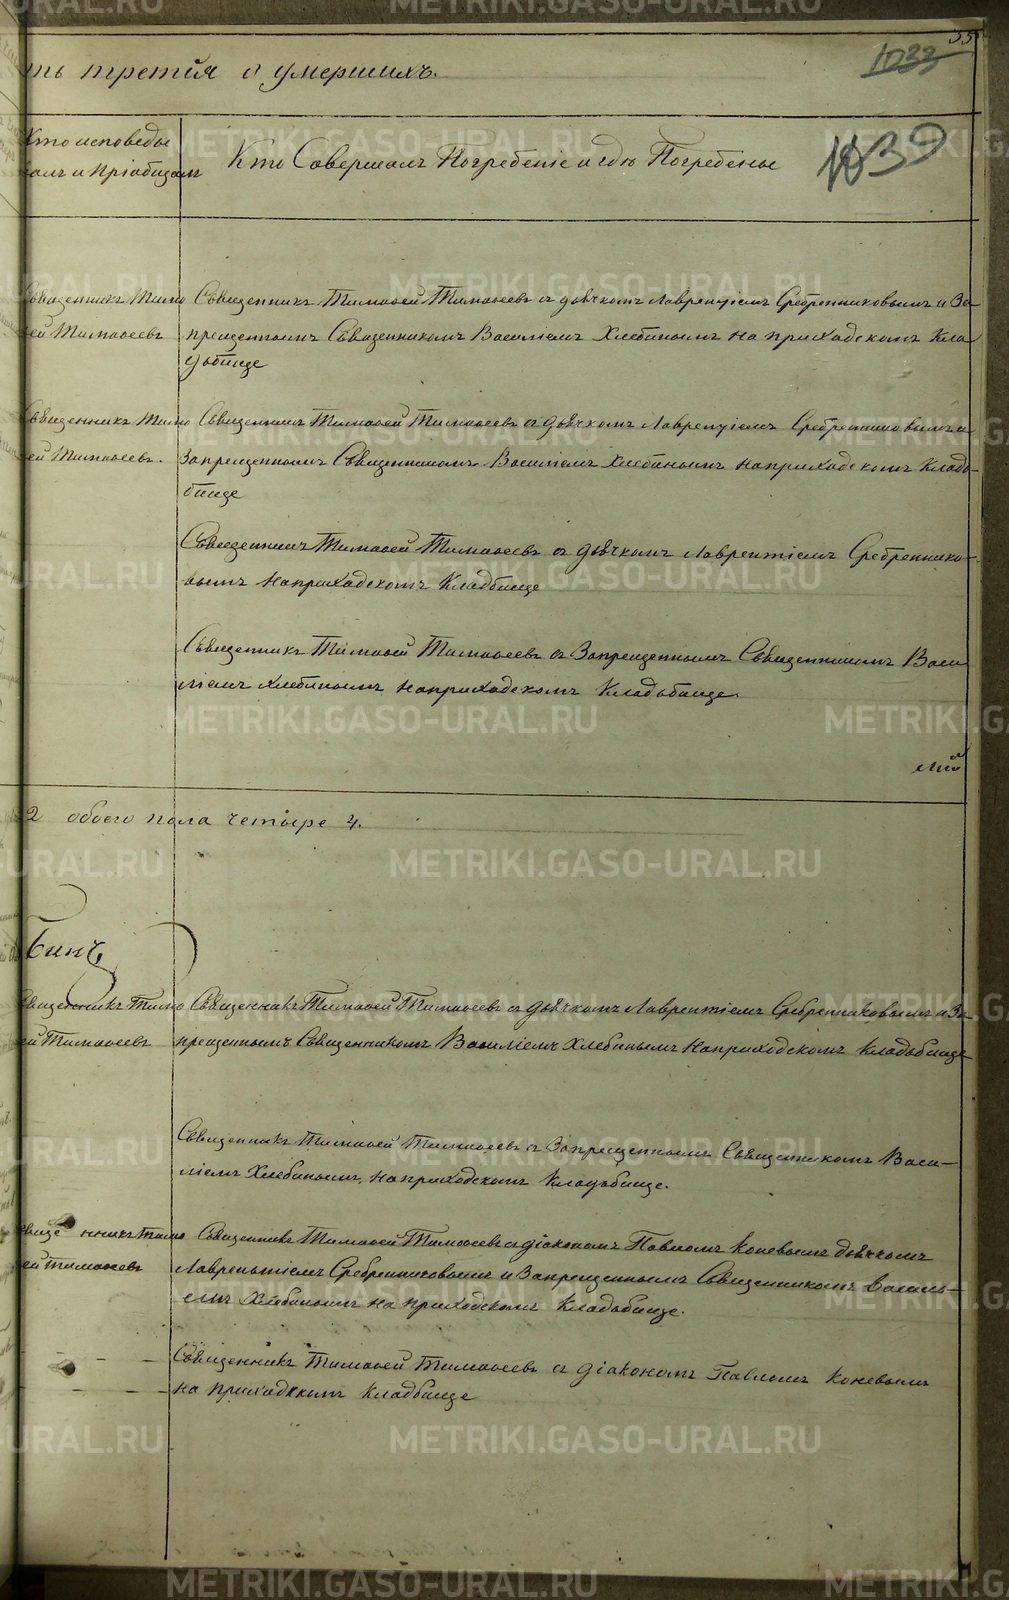 35
1033
1039
ть третія о умершихъ.
Кто исповеды
валъ и пріобщалъ
Кто Совершалъ Погребеніе и гдѣ Погребены
Священникъ Тимо
ѳей Тимоѳеевъ
Священникъ Тимоѳей Тимоѳеевъ съ дьячкомъ Лаврентіемъ Сребренниковымъ и За
прещеннымъ Священникомъ Василіемъ Хлебинымъ на приходскомъ Кла
дьбище
Священникъ Тимо
ѳей Тимоѳеевъ.
Священникъ Тимоѳей Тимоѳеевъ съ дьячкомъ Лаврентіемъ Сребренниковымъ и
Запрещеннымъ Священникомъ Василіемъ Хлебинымъ на приходскомъ Кладь
бище
Священникъ Тимоѳей Тимоѳеевъ съ дьячкомъ Лаврентіемъ Сребреннико
вымъ на приходскомъ Кладбище
Священникъ Тимоѳей Тимоѳеевъ съ Запрещеннымъ Священникомъ Васи
ліемъ Хлебинымъ на приходскомъ Кладьбище.
2 обоего пола четыре 4.
бинъ
Священникъ Тимо
ѳей Тимоѳеевъ
Священникъ Тимоѳей Тимоѳеевъ съ дьячкомъ Лаврентіемъ Сребренниковымъ и За
прещеннымъ Священникомъ Василіемъ Хлебинымъ на приходскомъ Кладьбище
Священникъ Тимоѳей Тимоѳеевъ съ Запрещеннымъ Священникомъ Васи
ліемъ Хлебинымъ, на приходскомъ Кладьбище.
свяще нникъ Тимо
ѳей Тимоѳеевъ
Священникъ Тимоѳей Тимоѳеевъ съ діакономъ Павломъ Коневымъ дьячкомъ
Лаврентьіемъ Сребренниковымъ и Запрещеннымъ Священникомъ Василь
емъ Хлебинымъ на приходскомъ Кладьбище.
Священникъ Тимоѳей Тимоѳеевъ съ діакономъ Павломъ Коневымъ
на приходскомъ Кладбище
METRIKI.GASO-URAL.RU